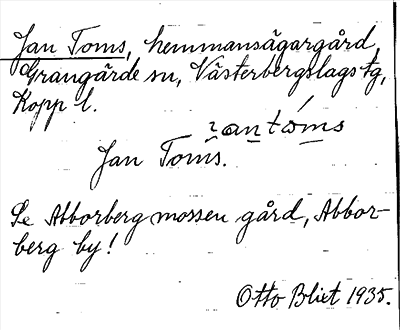 Jan Toms, hemmansägargård,
Grangärde sn, Västerbergslags tg,
Kopp l.
Jan Toms.
Se Abborbergmossen gård, Abbor-
berg by!
Otto Blixt 1935.